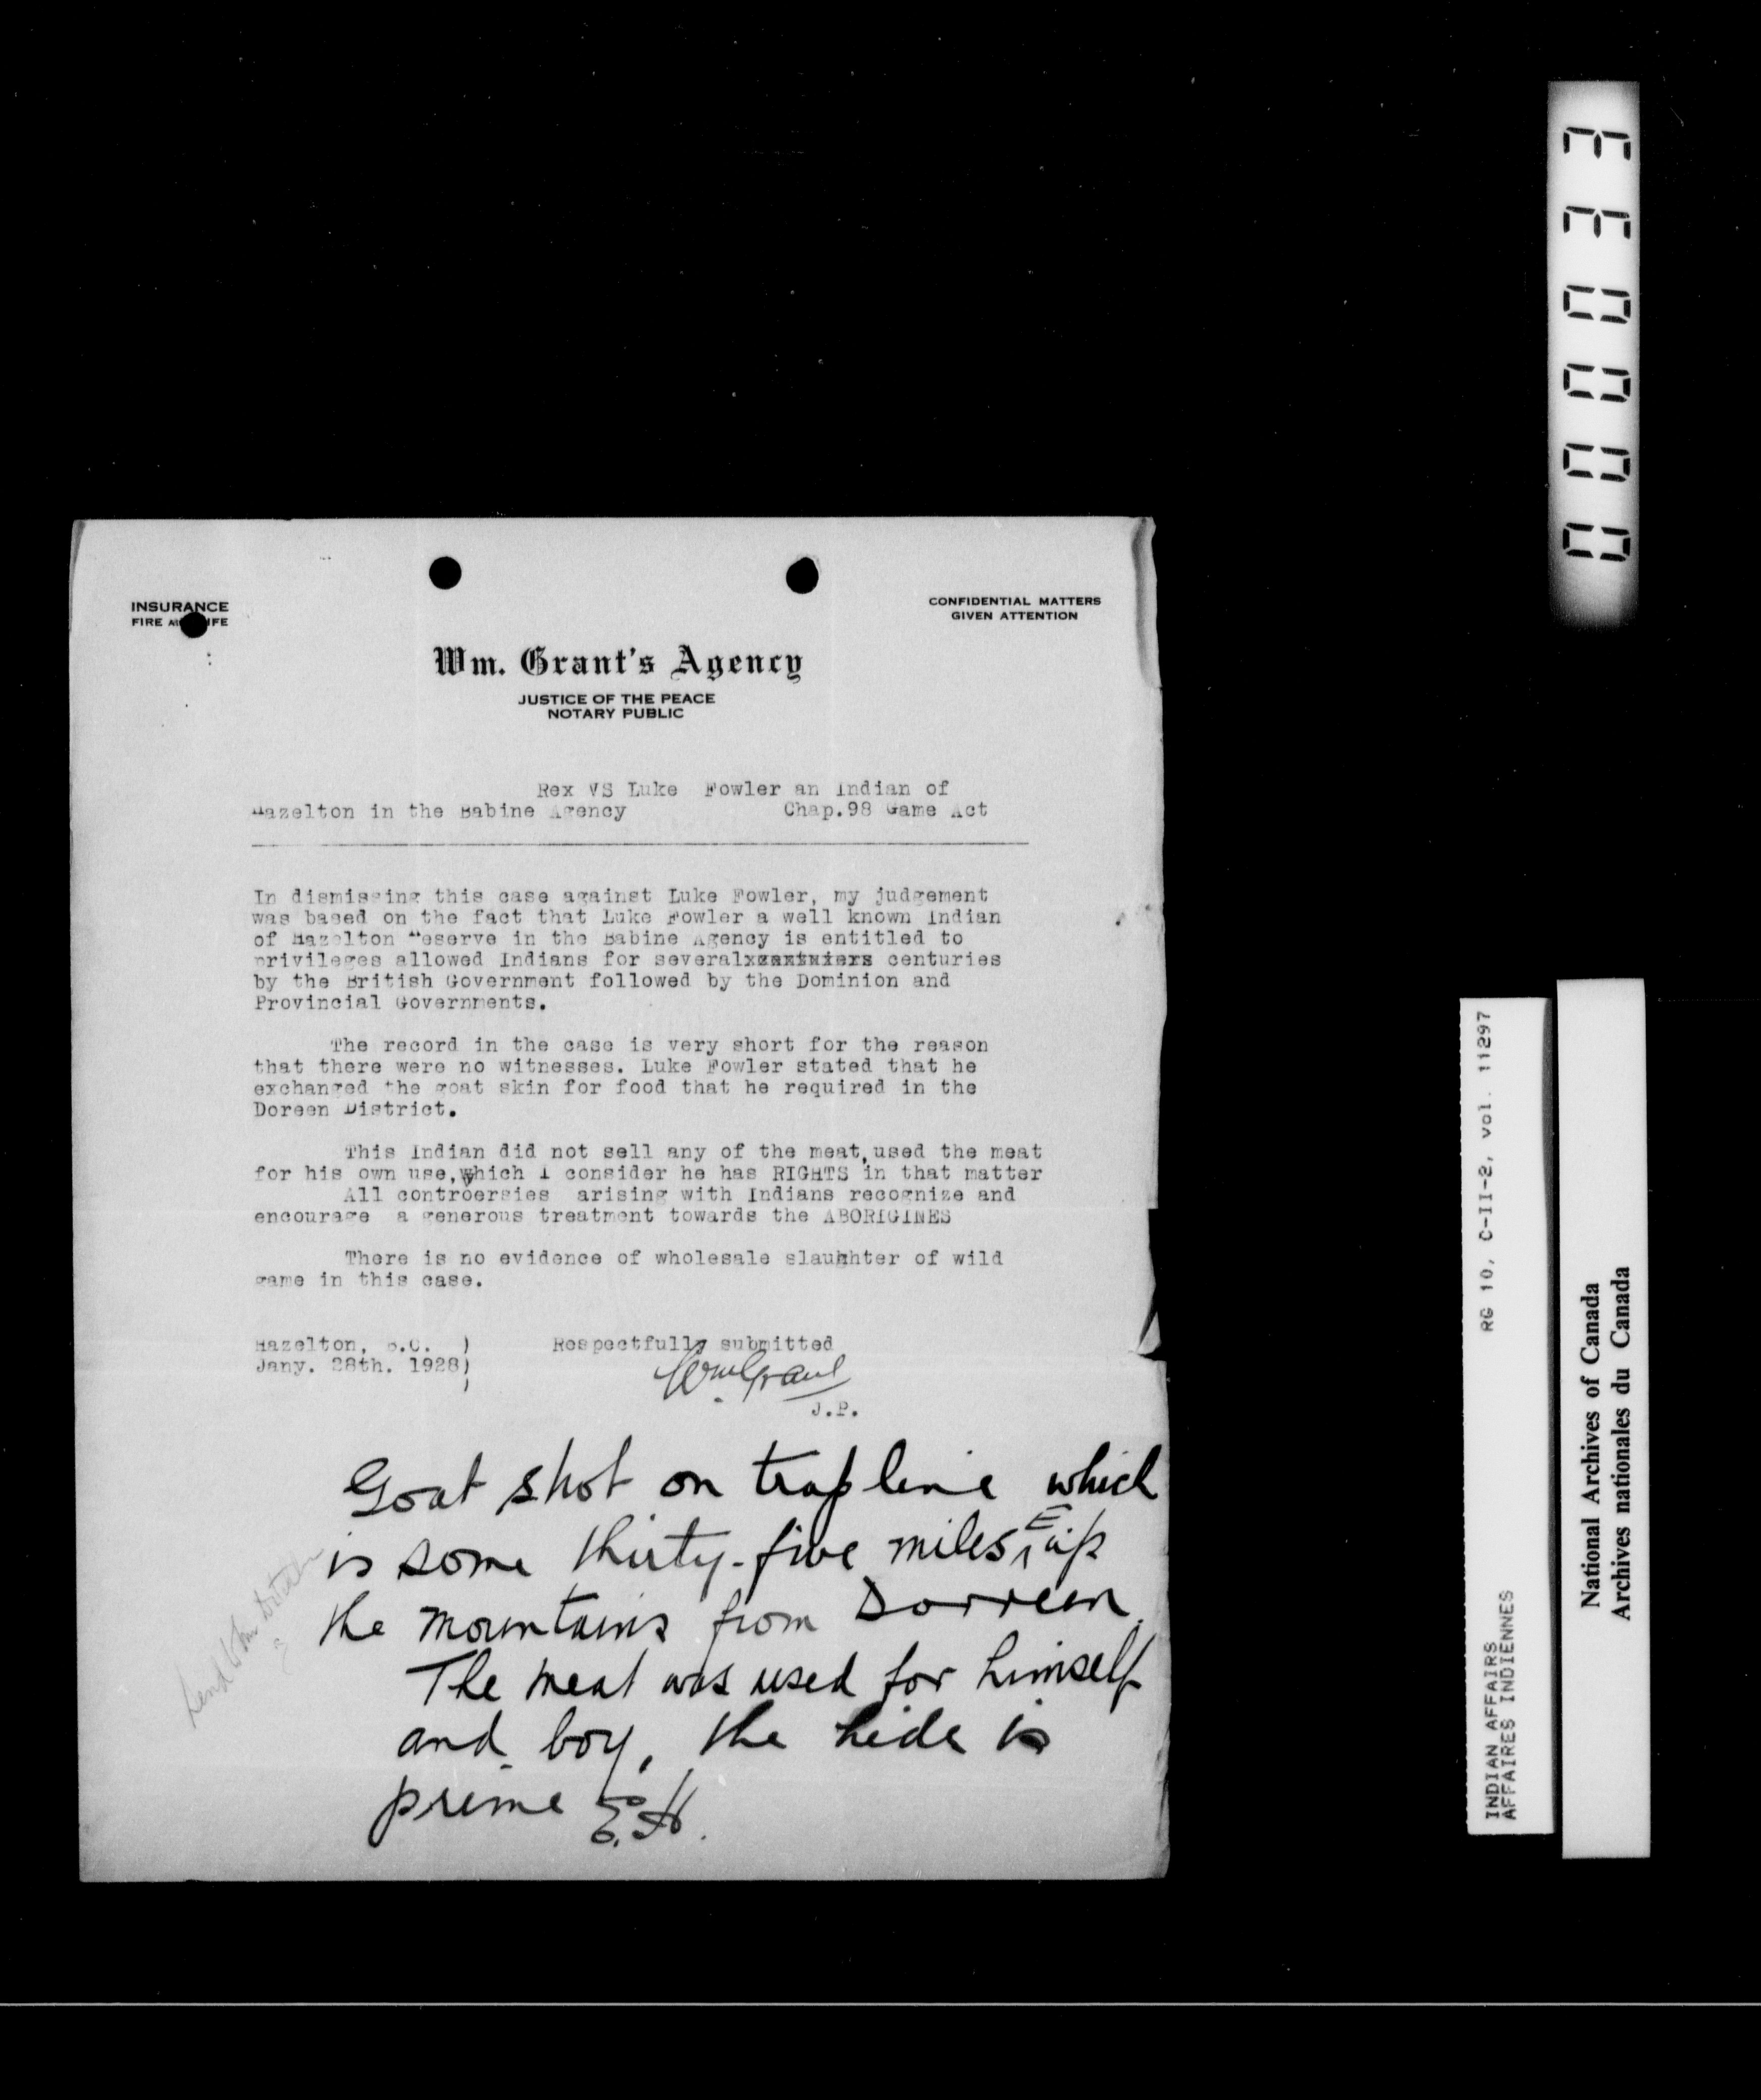 INSURANCE
FIRE AND LIFE
CONFIDENTIAL MATTERS
GIVEN ATTENTION
Wm. Grant's Agency
JUSTICE OF THE PEACE
NOTARY PUBLIC
Rex VS Luke Fowler an Indian of
Hazelton in the Babine Agency Chap.98 Game Act
In dismissing this case against Luke Fowler, my judgement
was based on the fact that Luke Fowler a well known Indian
of Hazelton Reserve in the Babine Agency is entitled to
privileges allowed Indians for several centuries
by the British Government followed by the Dominion and
Provincial Governments.
The record in the case is very short for the reason
that there were no witnesses. Luke Fowler stated that he
exchanged the goat skin for food that he required in the
Doreen District.
This Indian did not sell any of the meat, used the meat
for his own use, which I consider he has RIGHTS in that matter
All controersies arising with Indians recognize and
encourage a generous treatment towards the ABORIGINES
There is no evidence of wholesale slauhhter of wild
game in this case.
Hazelton, B.C. ) Respectfully submitted
Jany. 28th. 1928)
Wm Grant
J.P.
Goat shot on trap line which
is some thirty-five miles E up
the mountains from Dorreen.
The meat was used for himself
and boy, the hide is
prime E.H.
000033
RG 10, C-II-2, vol. 11297
INDIAN AFFAIRS
AFFAIRES INDIENNES
National Archives of Canada
Archives nationales du Canada